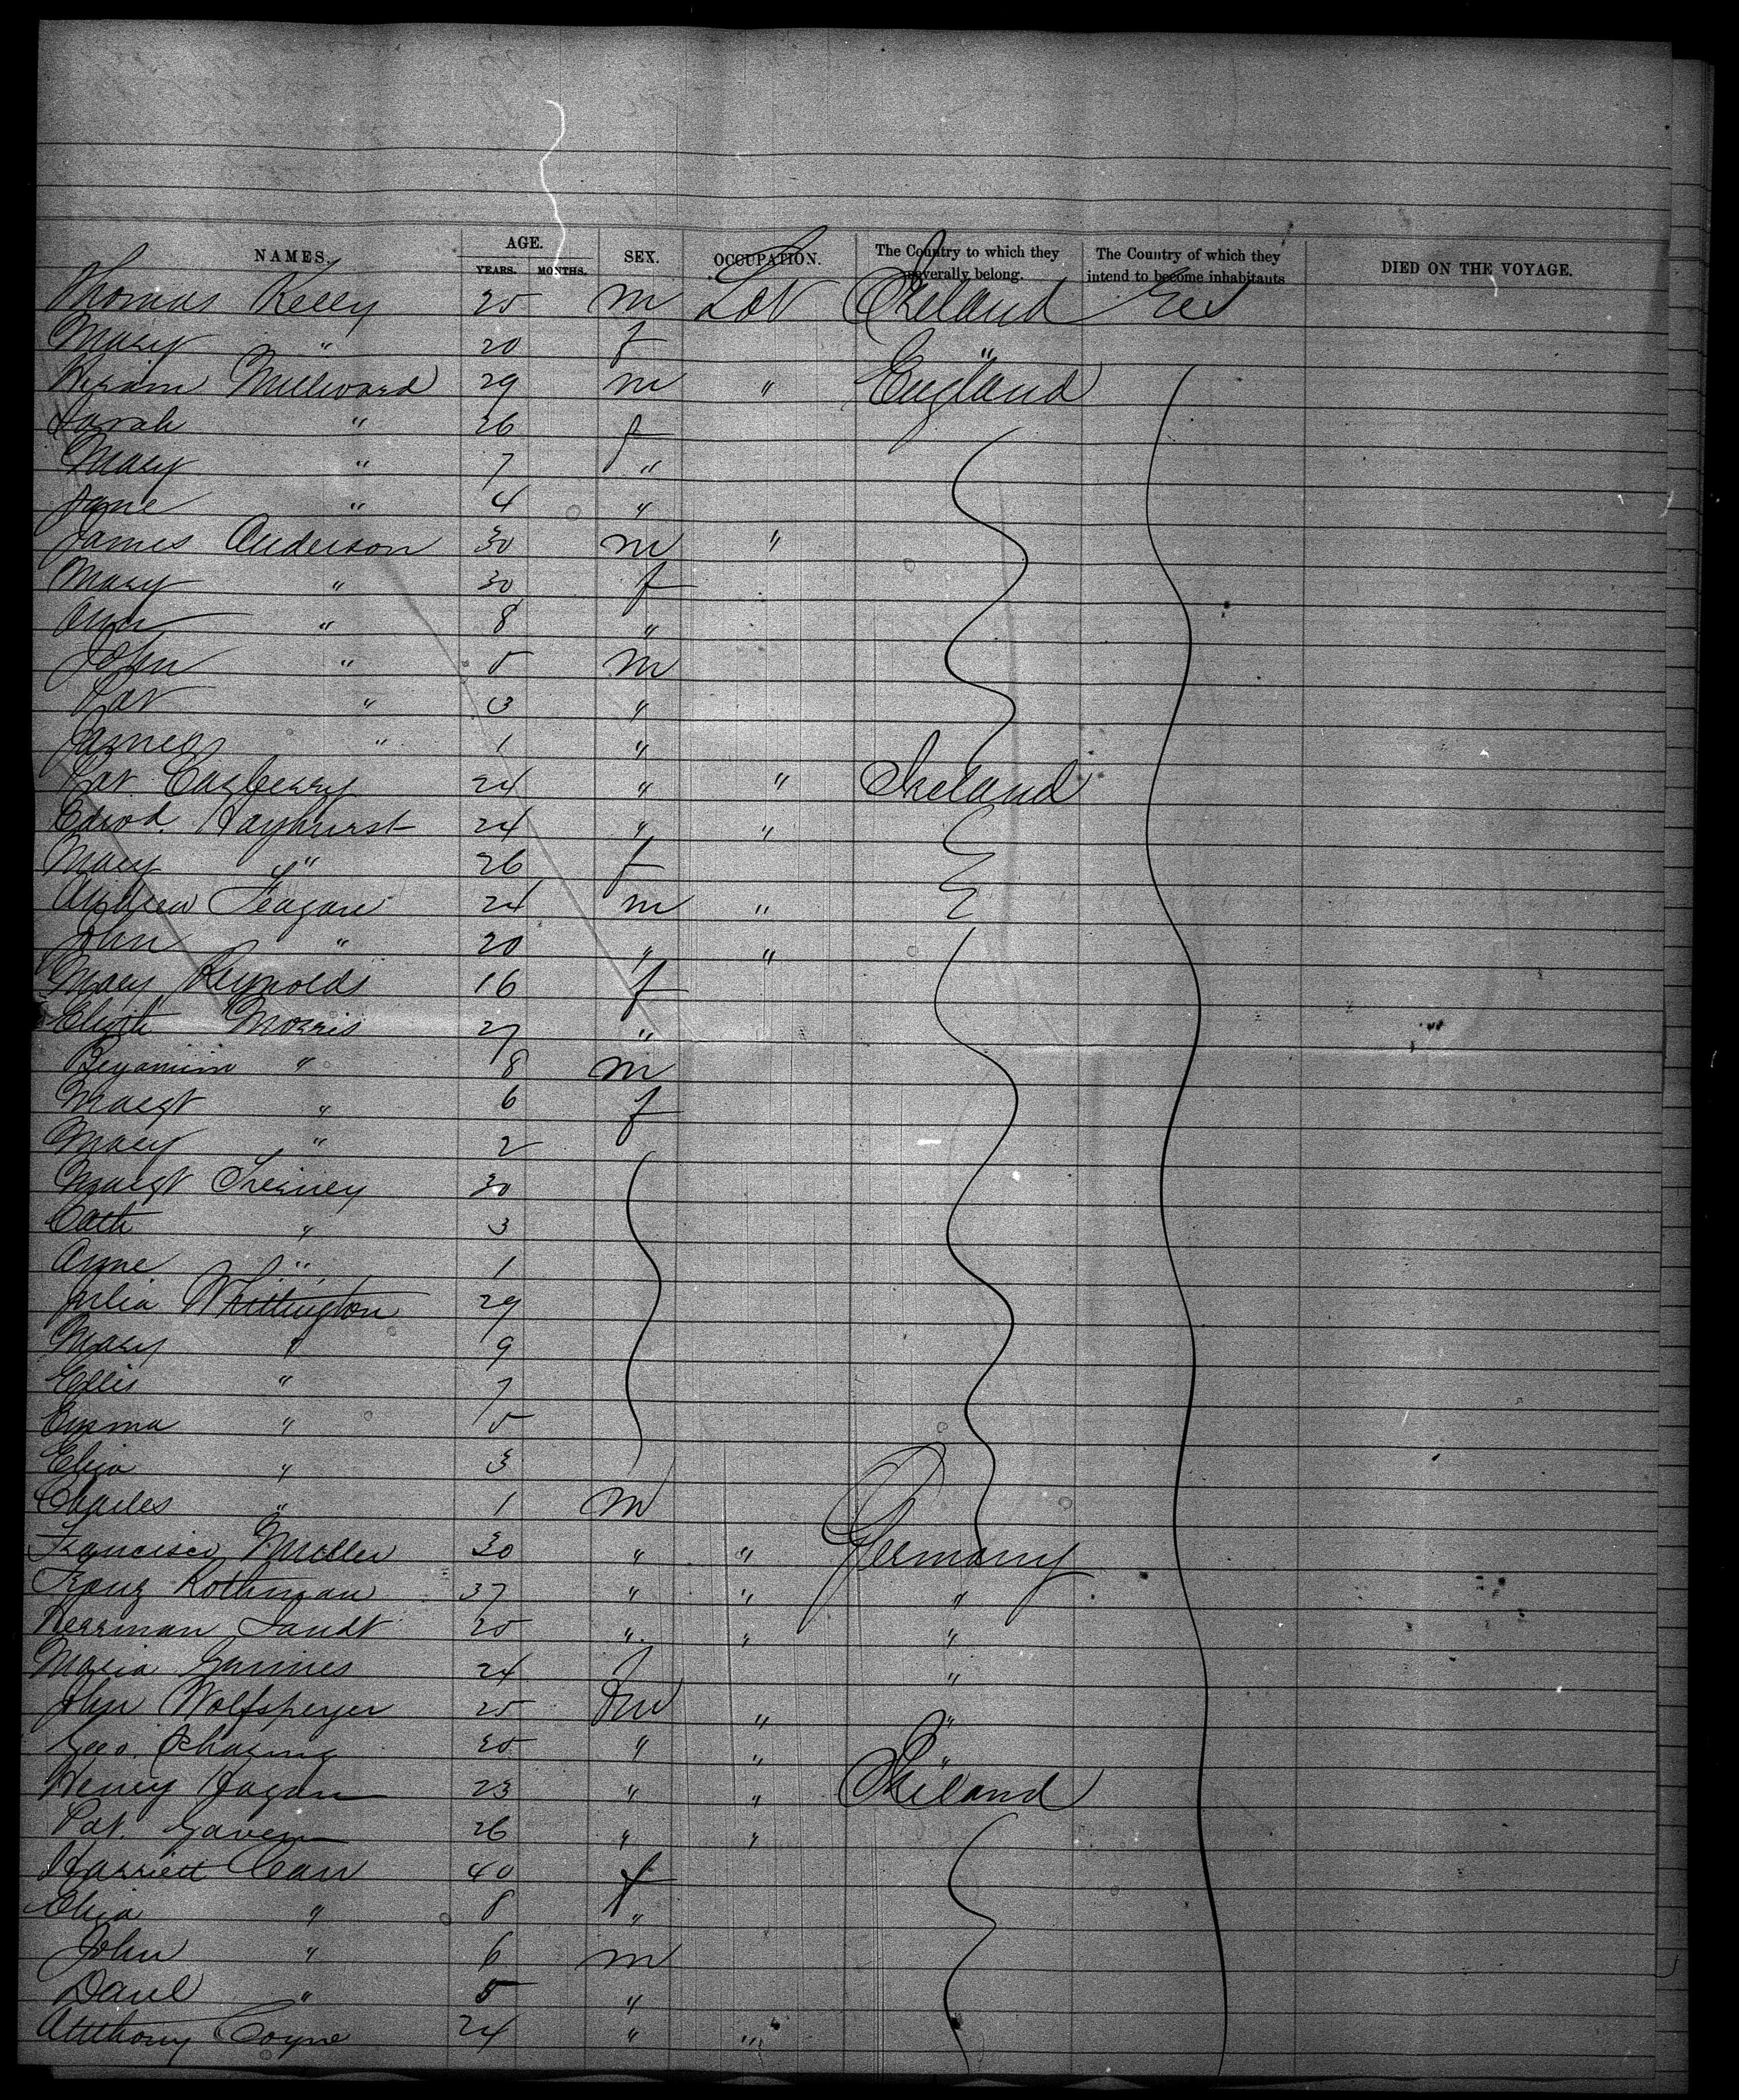 NAMES. AGE. YEARS. MONTHS. SEX. OCCUPATION. The Country to which they severally belong. The Country of which they intend to become inhabitants DIED ON THE VOYAGE.
Thomas Kelly 25 m Lab Ireland
Mary " 20 f "
Hiram Millward 29 m " England
Sarah " 26 f
Mary " 7 "
Jane " 4 "
James Anderson 30 m "
Mary " 30 f
Ann " 8 "
John " 5 m
Pat " 3 "
James " 1 "
Pat. Casberry 24 " " Ireland
Edwd. Hayhurst 24 " "
Mary " 26 f
Andrew Feagan 24 m "
John " 20 " "
Mary Reynolds 16 f
Elizth Morris 27 "
Benjamin " 8 m
Margt " 6 f
Mary " 2
Margt Tierney 30
Cath " 3
Anne " 1
Julia Whittington 29
Mary " 9
Ellis " 7
Emma " 5
Eliza " 3
Charles " 1 m
Francisco Muller 30 " " Germany
Franz Rothman 37 " " "
Herrman Sandt 25 " " "
Maria 24 f "
John Wolfsperger 25 m " "
Geo. " " "
Henry Hagan 23 " " Ireland
Pat. Gavern 26 " "
Harriett Carr 40 f
Eliza " 8 "
John " 6 m
Danl " 5 "
Anthony Coyne 24 " "